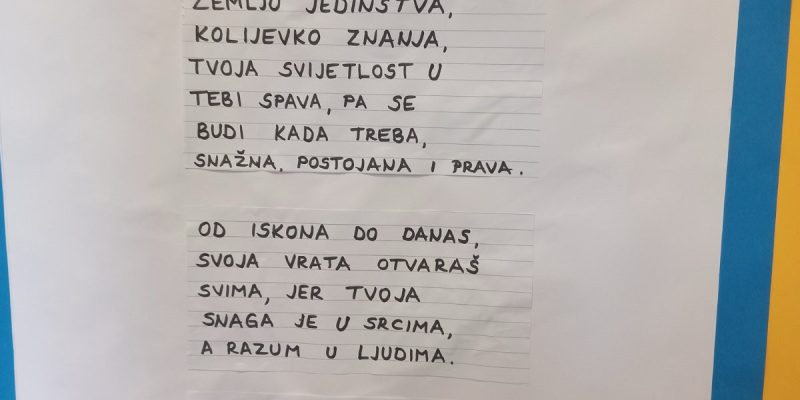 ZEMLJO JEDINSTVA,
KOLIJEVKO ZNANJA,
TVOJA SVIJETLOST U
TEBI SPAVA, PA SE
BUDI KADA TREBA,
SNAŽNA, POSTOJANA I PRAVA.
OD ISKONA DO DANAS,
SVOJA VRATA OTVARAŠ
SVIMA, JER TVOJA
SNAGA JE U SRCIMA,
A RAZUM U LJUDIMA.